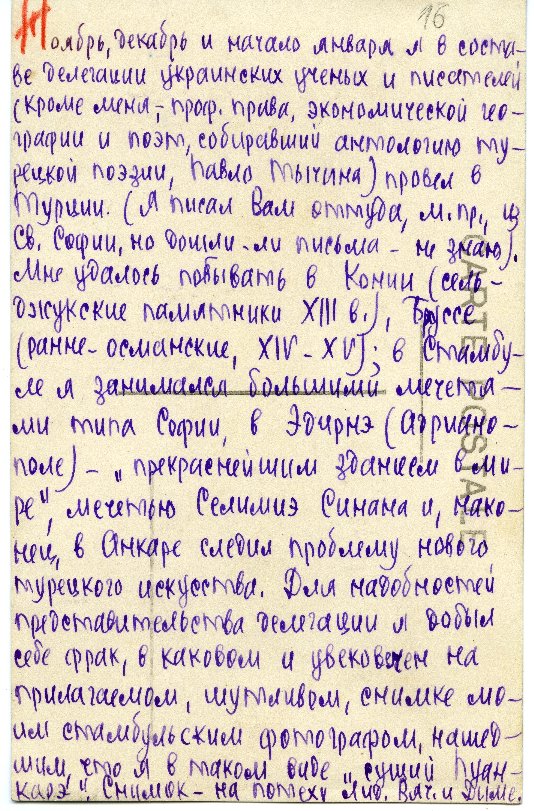 16
Ноябрь, декабрь и начало января я в соста-
ве делегации украинских ученых и писателей
(кроме меня, - проф. права, экономической гео-
графии и поэт, собиравший антологию ту-
рецкой поэзии, Павло Тычина) провел в
Турции. (Я писал Вам оттуда, м. пр., из
Св. Софии, но дошли-ли письма - не знаю).
Мне удалось побывать в Конии (сель-
джукские памятники XIII в.), Бруссе
(ранне-османские, XIV-XV); в Стамбу-
ле я занимался большими мечетя-
ми типа Софии, в Эдирнэ (Адриано-
поле) - „прекраснейшим зданием в ми-
ре", мечетью Селимиэ Синана и, нако-
нец, в Анкаре следил проблему нового
турецкого искусства. Для надобностей
представительства делегации я добыл
себе фрак, в каковом и увековечен на
прилагаемом, шутливом, снимке мо-
им стамбульским фотографом, нашед-
шим, что я в таком виде „сущий Пуан-
карэ". Снимок - на потеху Лид. Вл. и Диме.
CARTE POSTALE